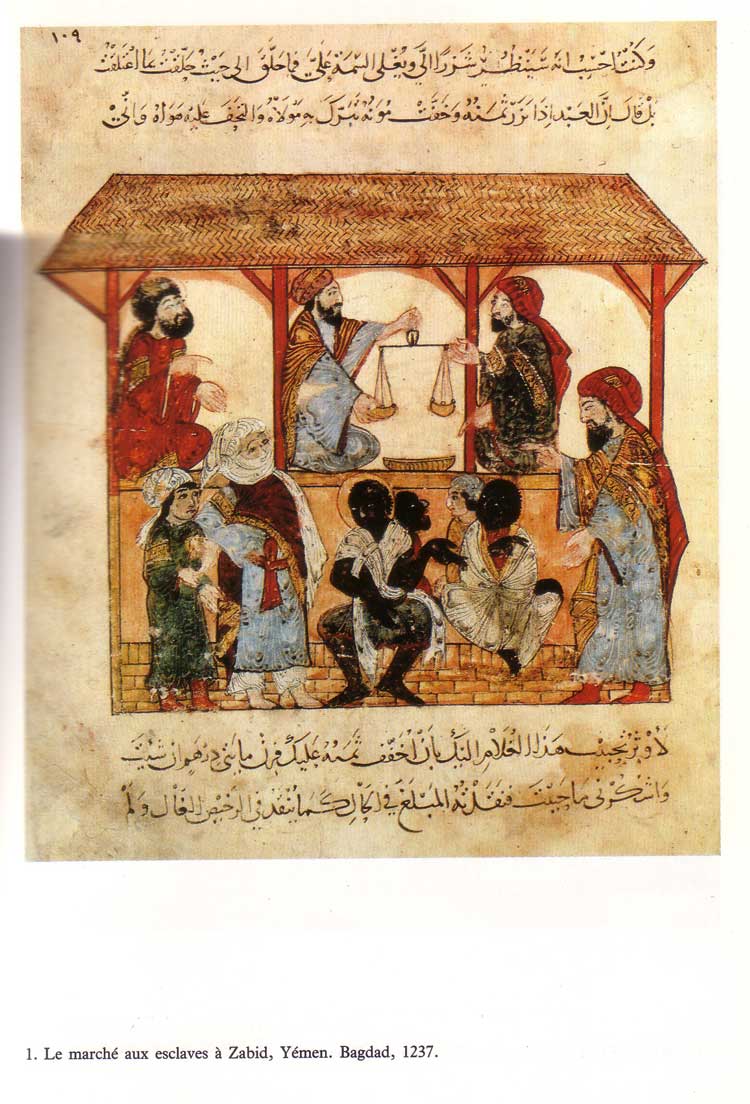 ١٠٩
وكنت احسب انه سينظر شزرا الي ويغلى السمة علي فما حلق الى حيث حلقت اعتلقت
بل قال ان العبد اذا نزر ثمنه وخفت مونه تبرك به مولاه والتحف عليه هواه واني
لاوثر تحبيب هذا الغلام اليك بان اخفف ثمنه عليك فزن مايتي درهم ان شيت
واشكرني ما حييت فنقدته المبلغ في الحال كما ينقد في الرخيص الغال ولم
1. Le marché aux esclaves à Zabid, Yémen. Bagdad, 1237.